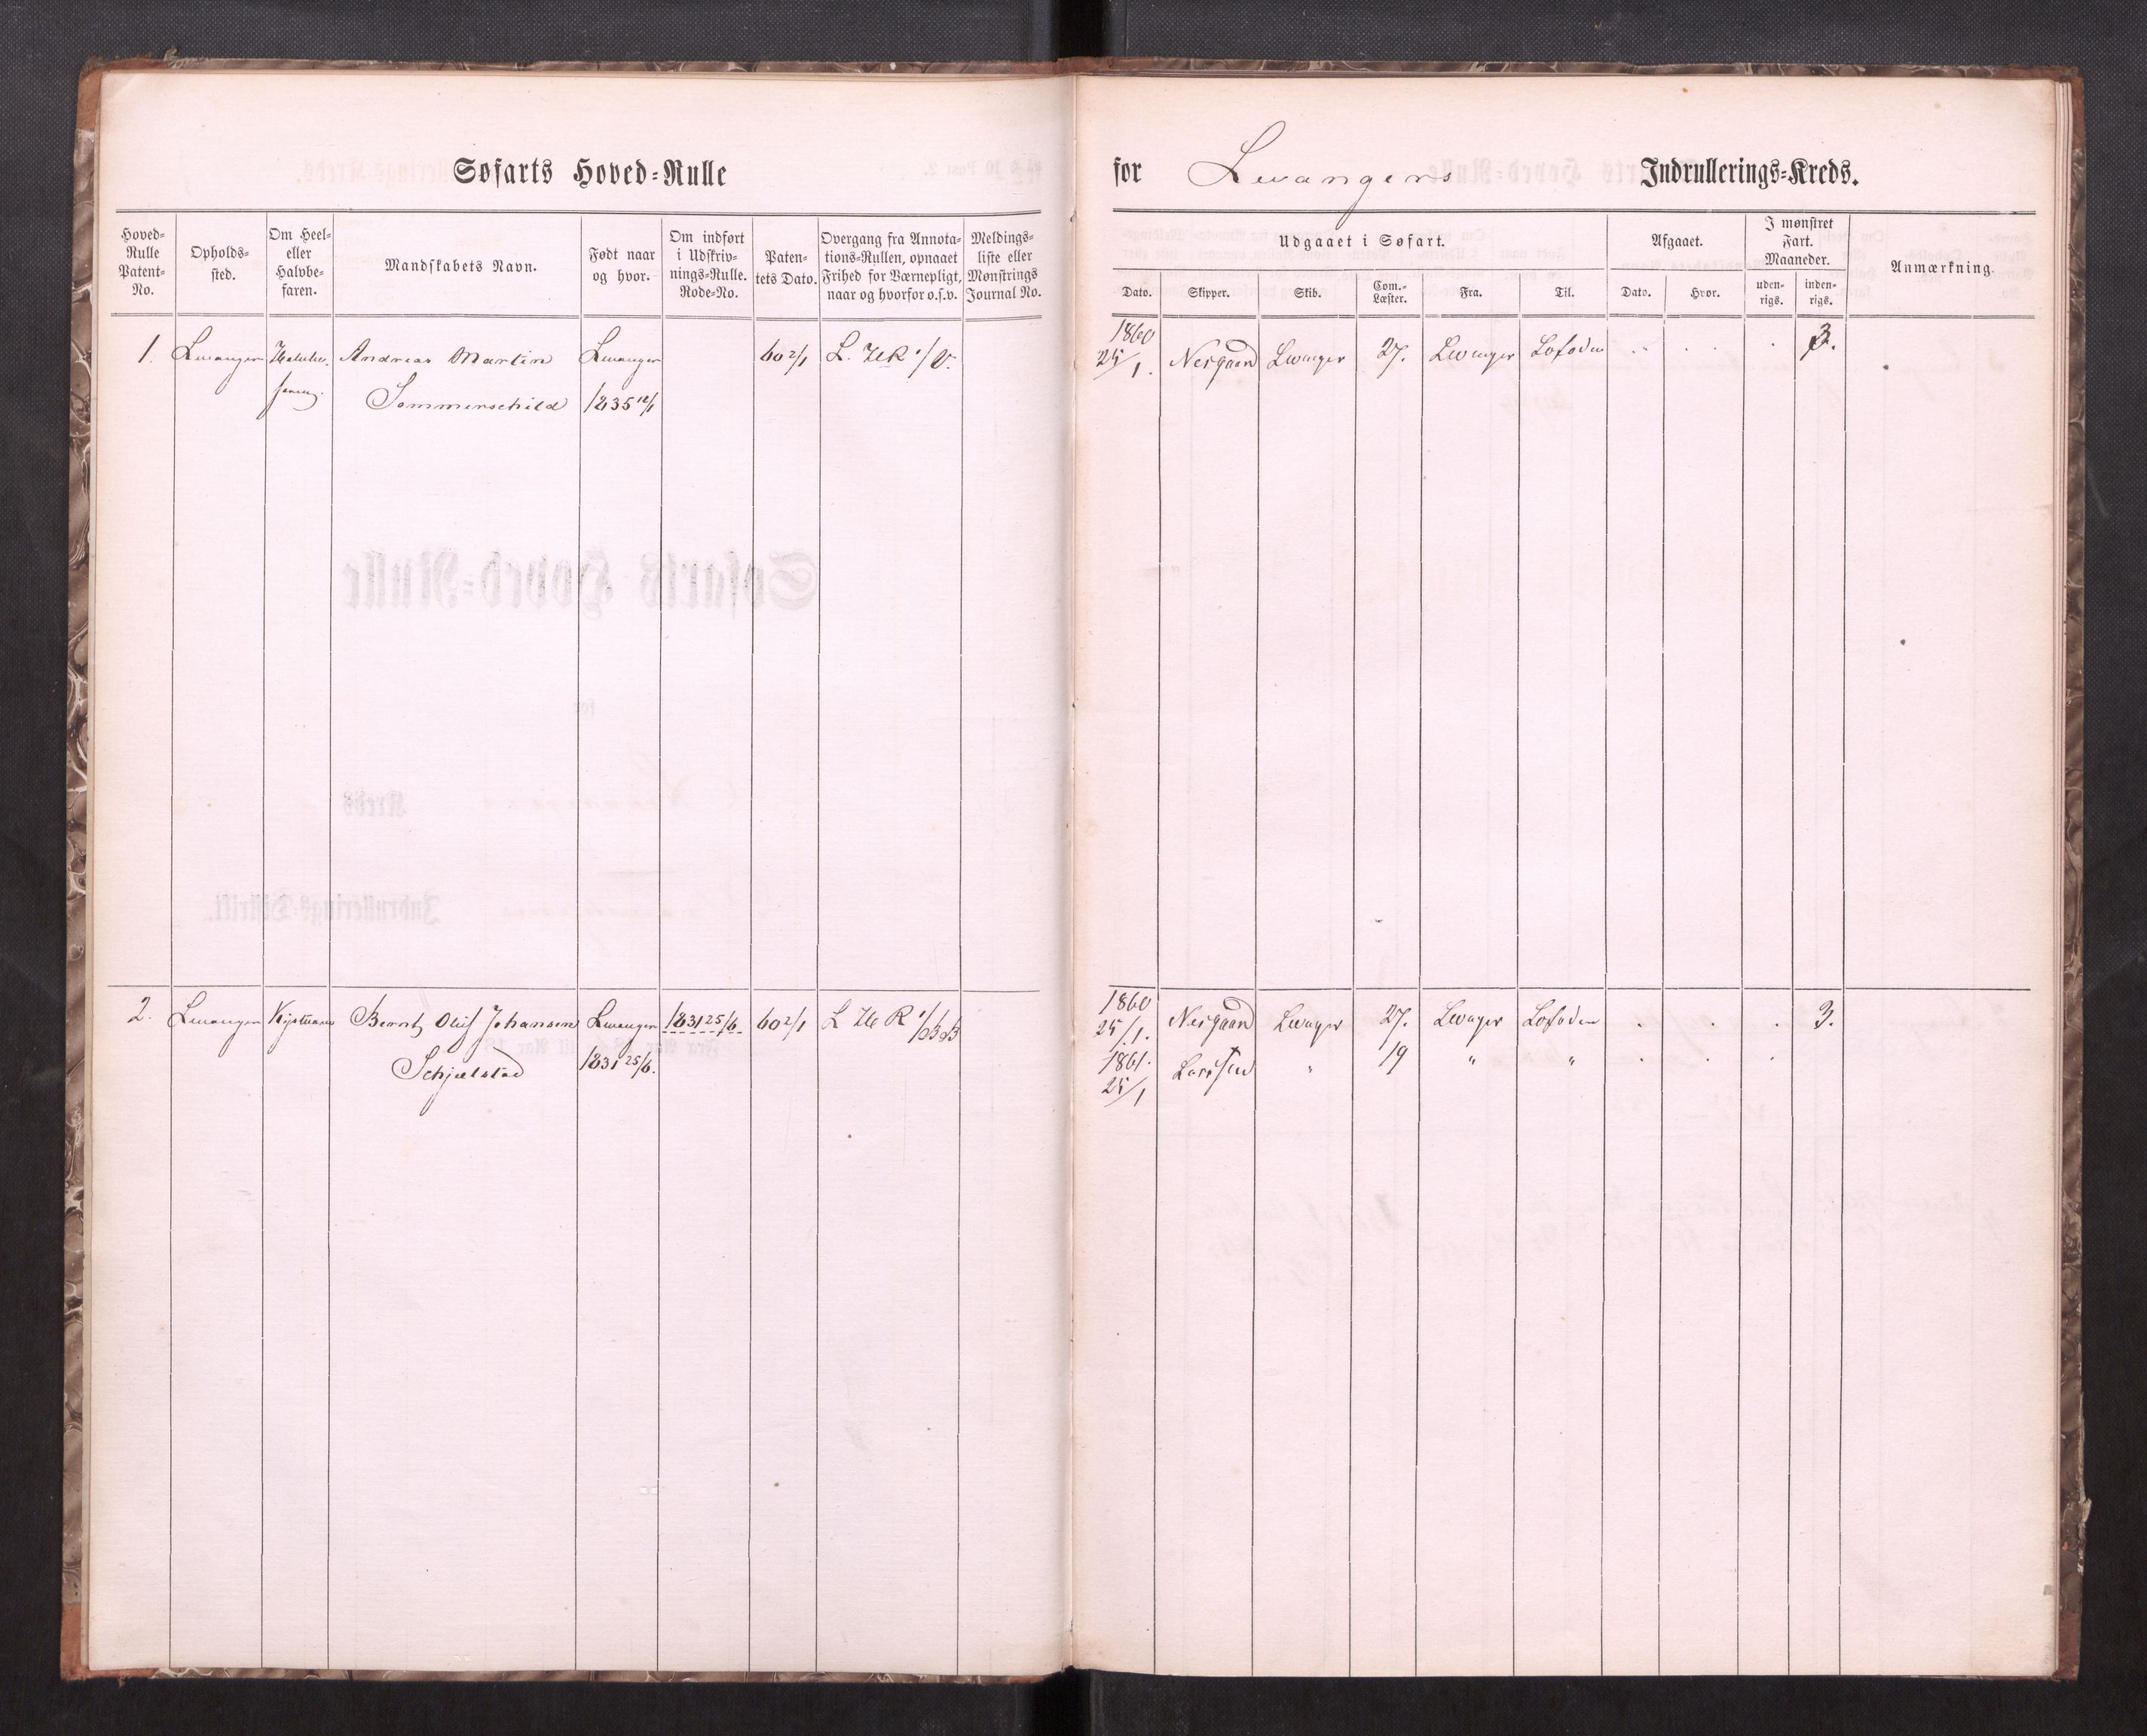 Søfarts Hoved-Rulle
for Levangers Indrullerings-Kreds.
Hoved-Rulle Patent-No.
Opholds-sted.
Om Heel- eller Halvbe-faren.
Mandskabets Navn.
Født naar og hvor.
Om indført i Udskriv-nings-Rulle. Rode-No.
Paten-tets Dato.
Overgang fra Annota-tions-Rullen, opnaaet Frihed for Værnepligt, naar og hvorfor o.s.v.
Meldings-liste eller Mønstrings Journal No.
Udgaaet i Søfart.
Afgaaet.
I mønstret Fart. Maaneder.
Anmærkning.
Dato.
Skipper.
Skib.
Com.-Læster.
Fra.
Til.
Dato.
Hvor.
uden-rigs.
inden-rigs.
1. Levanger Andreas Martin Levanger 60 2/1 L.
Sommerschild 1835
1860
25/1. Nesgaard Levanger 27. Levanger Lofoden 3.
2. Levanger Kystmand Bernt Oluf Johansen Levanger 1831 25/6. 60 2/1 L
Schjelstad 1831 25/6.
1860
25/1. Nesgaard Levanger 27. Levanger Lofoden 3.
1861.
25/1 " 19 " "